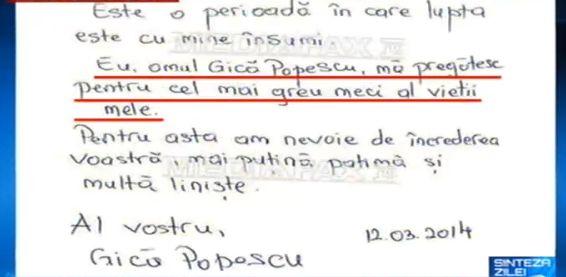 Este o perioadă în care lupta
este cu mine însumi
Eu, omul Gică Popescu, mă pregătesc
pentru cel mai greu meci al vieții
mele.
Pentru asta am nevoie de încrederea
voastră, mai puțină patimă și
multă liniște.
Al vostru,
12.03.2014
Gică Popescu
MEDIAFAX
MEDIAFAX
SINTEZA
ZILEI